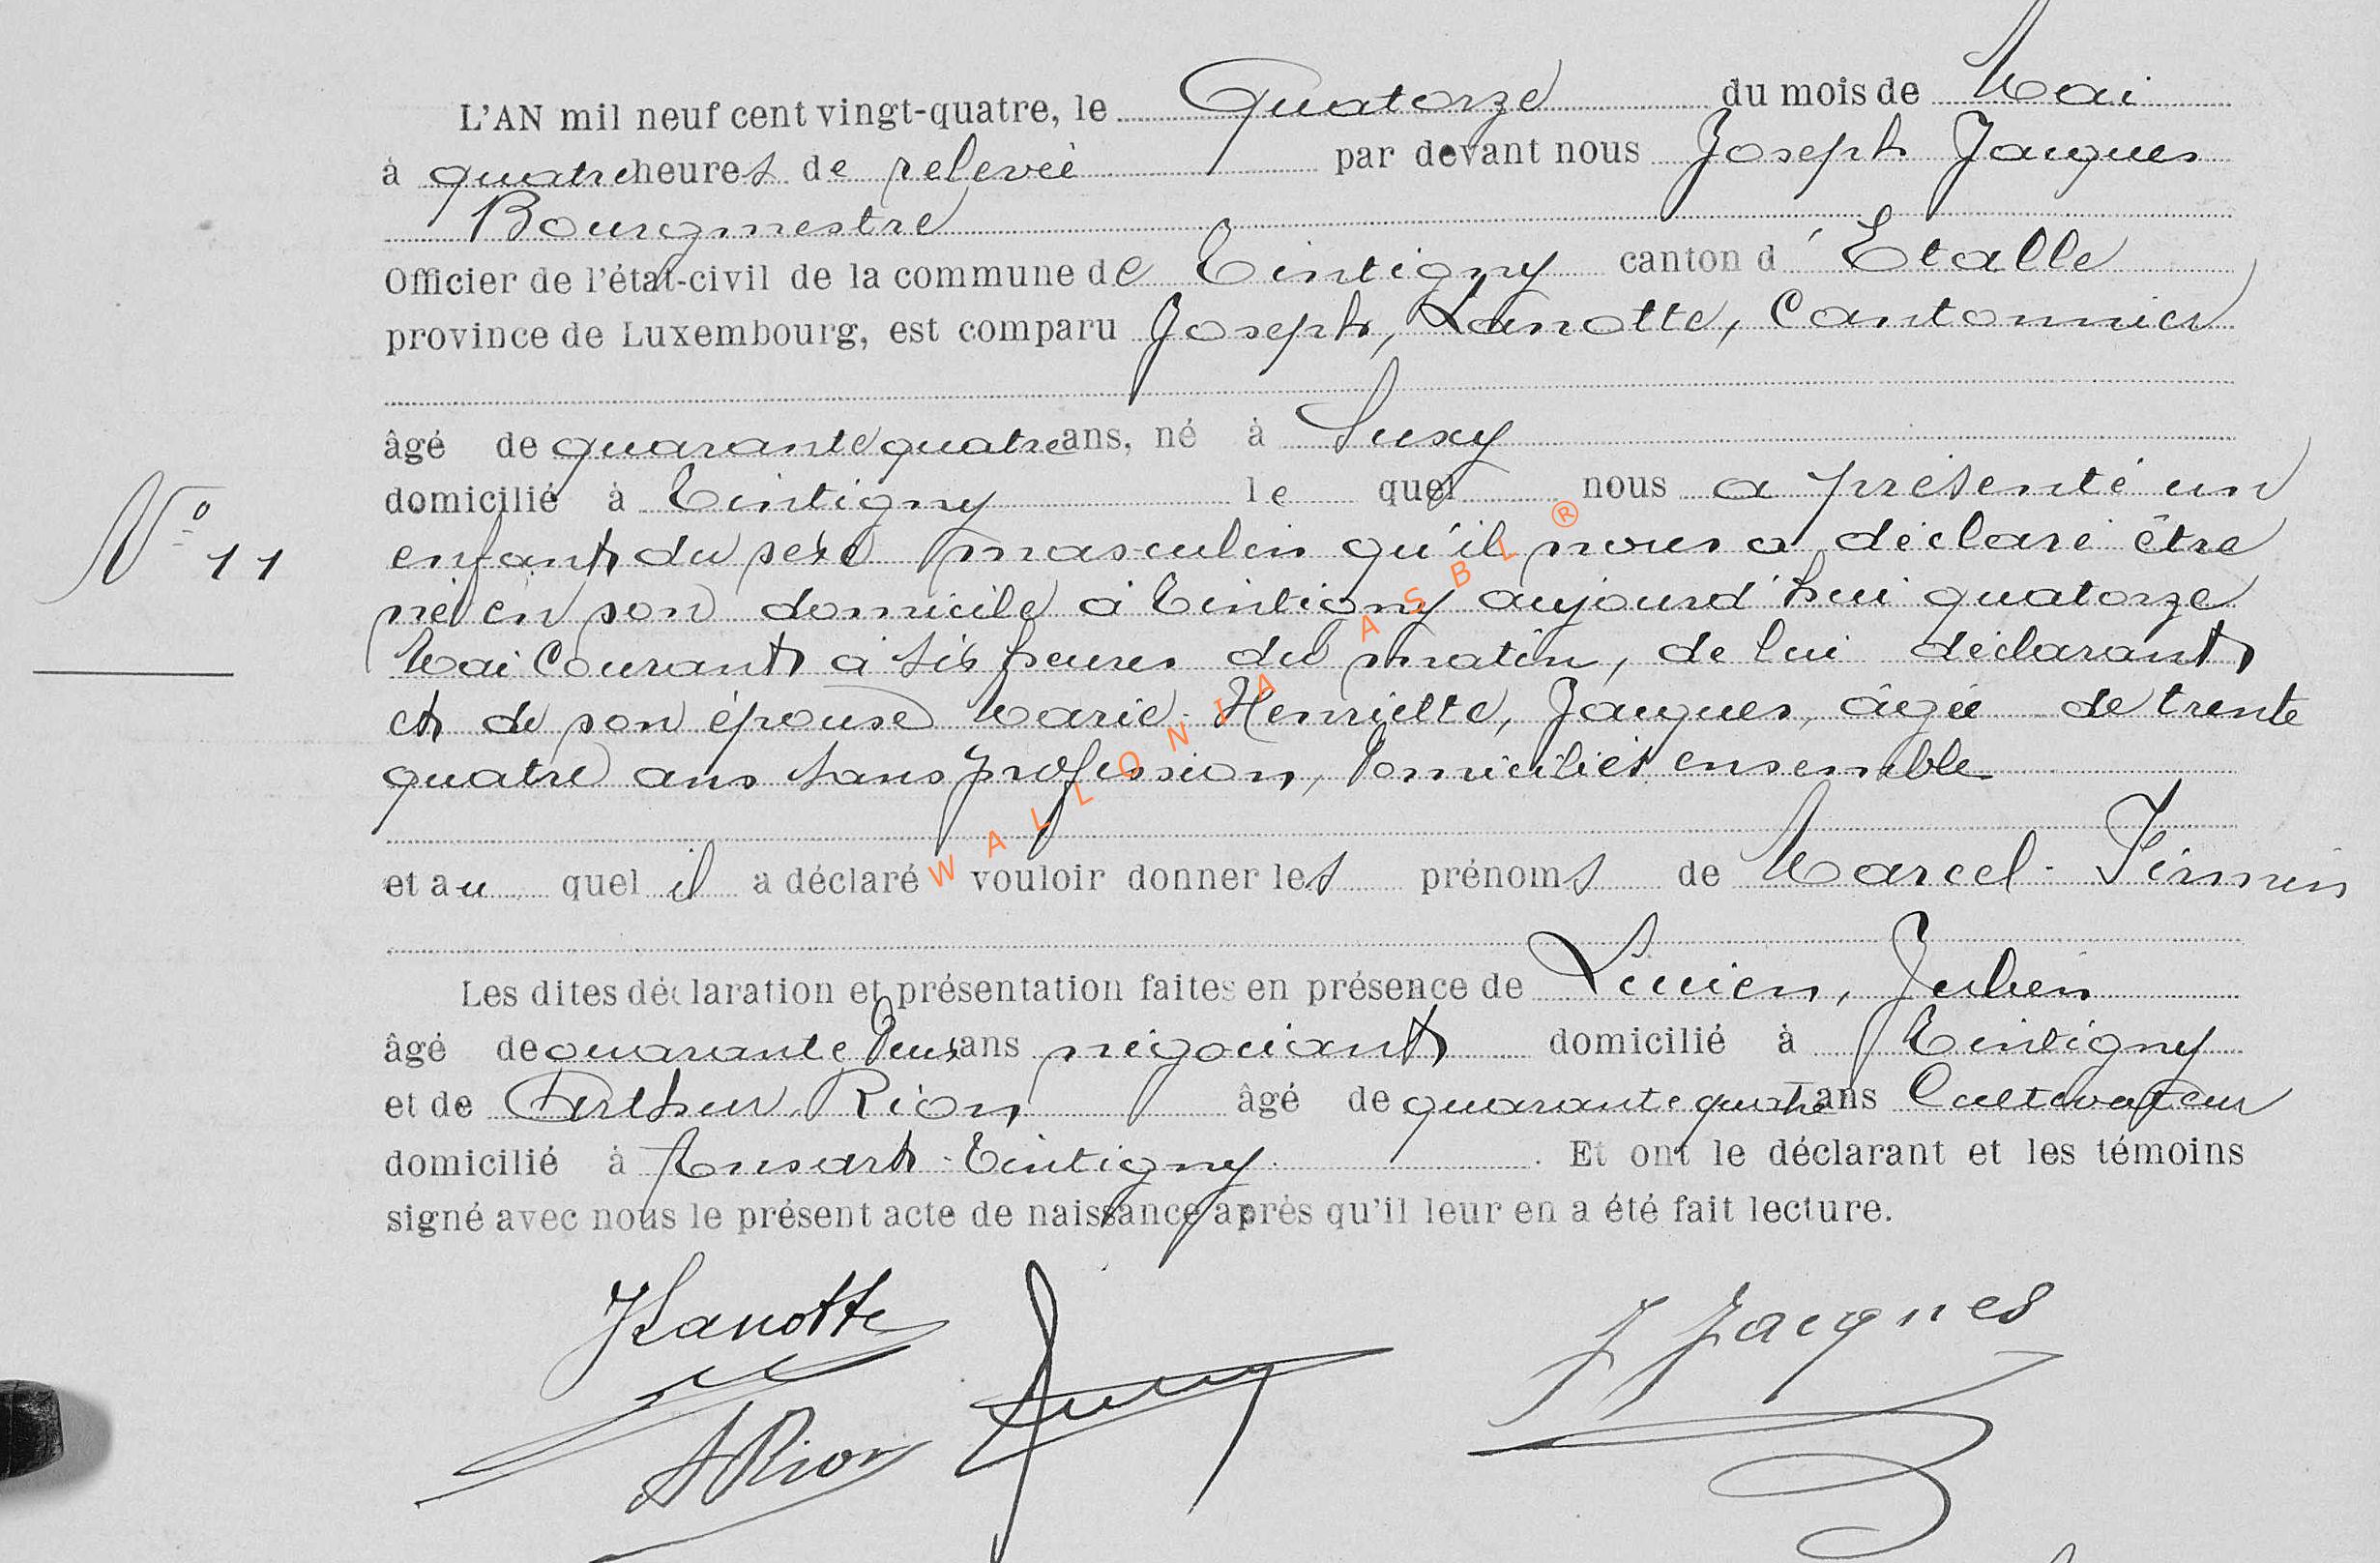 L'AN mil neuf cent vingt-quatre, le Quatorze du mois de Mai
à quatre heures de relevée par devant nous Joseph Jacques
Bourgmestre
Officier de l'état-civil de la commune de Tintigny canton d'Etalle
province de Luxembourg, est comparu Joseph, Lanotte, Cantonnier
âgé de quarante quatre ans, né à Suxy
domicilié à Tintigny le quel nous a présenté un
N° 11
enfant du sexe masculin qu'il nous a déclaré être
né en son domicile à Tintigny aujourd'hui quatorze
Mai Courant à six heures du matin, de lui déclarant
et de son épouse Marie-Henriette, Jacques, âgée de trente
quatre ans sans profession, domiciliés ensemble
et au quel il a déclaré vouloir donner les prénoms de Marcel-Firmin
Les dites déclaration et présentation faites en présence de Lucien, Julien
âgé de quarante deux ans négociant domicilié à Tintigny
et de Arthur Rion âgé de quarante quatre ans Cultivateur
domicilié à Ansart-Tintigny. Et ont le déclarant et les témoins
signé avec nous le présent acte de naissance après qu'il leur en a été fait lecture.
JLanotte
J Jacques
ARion
WALLONIA ASBL ®